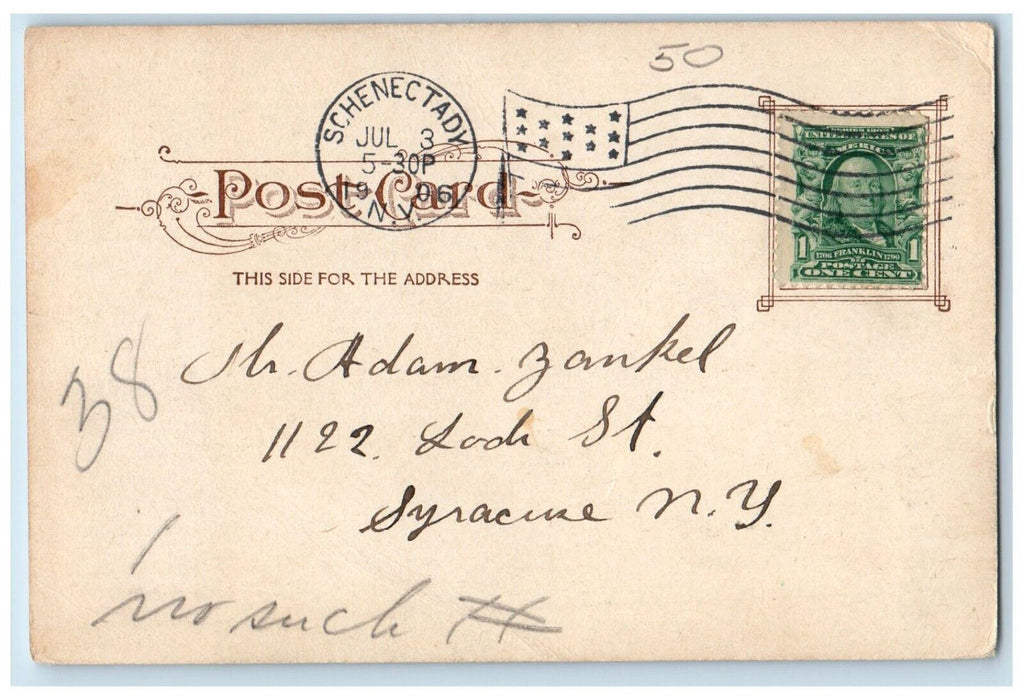 50
SCHENECTADY
JUL 3
5-30P
1906
N.Y.
Post Card
THIS SIDE FOR THE ADDRESS
SERIES 1902
UNITED STATES OF
AMERICA
1 1
1706 FRANKLIN 1790
POSTAGE
ONE CENT
38
Mr. Adam. Zankel
1122. Lodi St.
Syracuse N.Y.
1
no such #